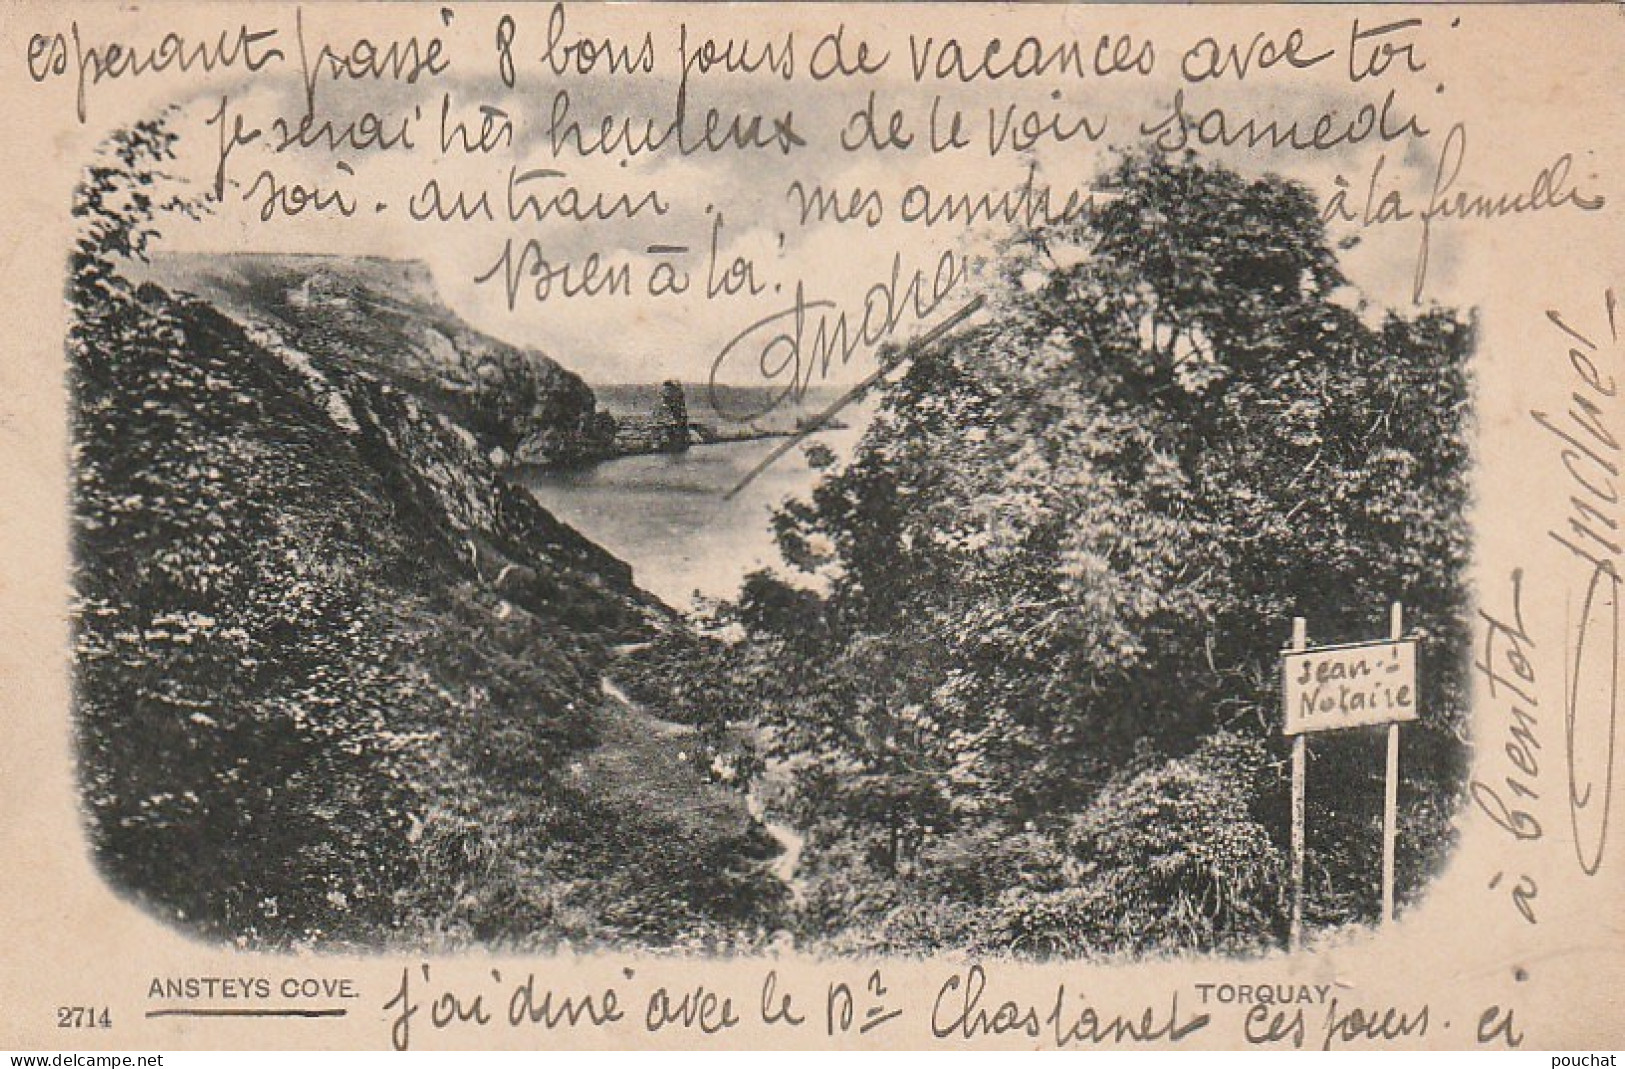 esperant passé 8 bons jours de vacances avec toi
je serai très heureux de te voir Samedi
soir. au train. mes amitiés à la famille
Bien à toi.
André
Jean
Notaire
à bientot
André
ANSTEYS COVE.
TORQUAY
2714
J'ai diné avec le Dr Chastanet ces jours. ci